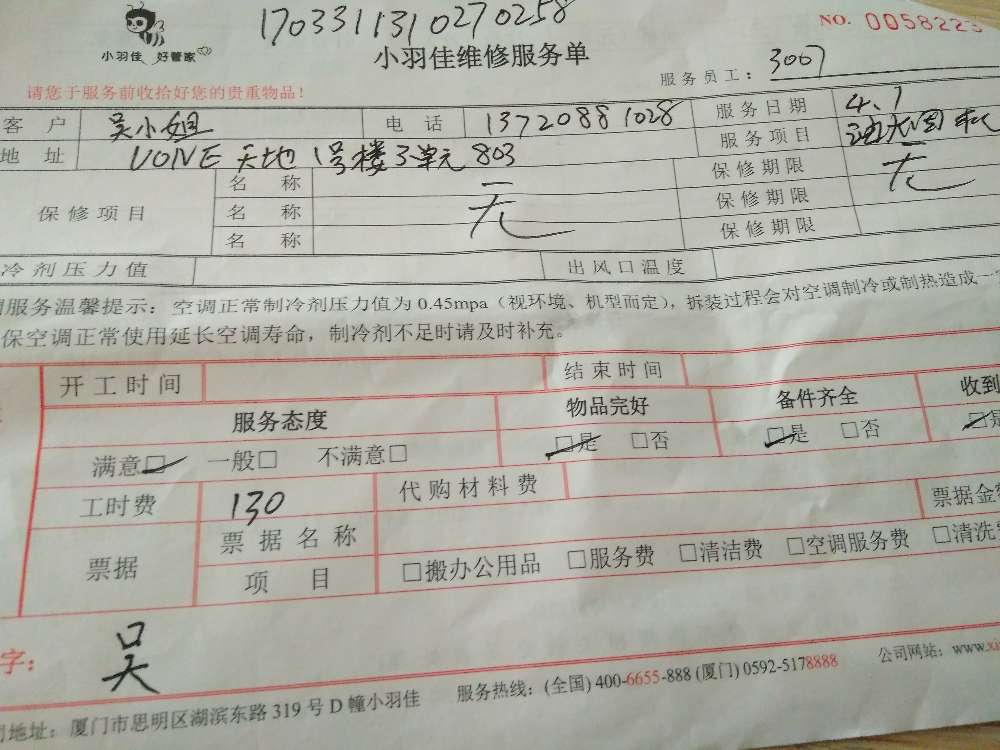 1703311310270258
NO. 0058223
小羽佳 好管家
小羽佳维修服务单
服务员工：3007
请您于服务前收拾好您的贵重物品！
客 户 吴小姐 电 话 13720881028 服务日期 4.1
地 址 VONE天地1号楼3单元803 服务项目 油烟机
保修项目 名 称 无 保修期限 无
名 称 保修期限
名 称 保修期限
冷剂压力值 出风口温度
服务温馨提示：空调正常制冷剂压力值为0.45mpa（视环境、机型而定），拆装过程会对空调制冷或制热造成一
保空调正常使用延长空调寿命，制冷剂不足时请及时补充。
开工时间 结束时间
服务态度 物品完好 备件齐全 收到
满意□ 一般□ 不满意□ □是 □否 □是 □否 □是
工时费 130 代购材料费 票据金
票据 票据名称
项 目 □搬办公用品 □服务费 □清洁费 □空调服务费 □清洗
字： 吴
地址：厦门市思明区湖滨东路319号D幢小羽佳 服务热线：(全国) 400-6655-888 (厦门) 0592-5178888 公司网站：www.